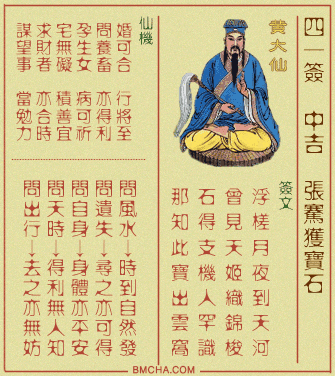 四一簽 中吉 張騫獲寶石
黃大仙
簽文
浮槎月夜到天河
曾見天姬織錦梭
石得支機人罕識
那知此寶出雲窩
仙機
婚可合 行將至
問養畜 亦得利
孕生女 病可祈
宅無礙 積善宜
求財者 亦合時
謀望事 當勉力
問風水→時到自然發
問遺失→尋之亦可得
問自身→身體亦平安
問天時→得利無人知
問出行→去之亦無妨
BMCHA.COM